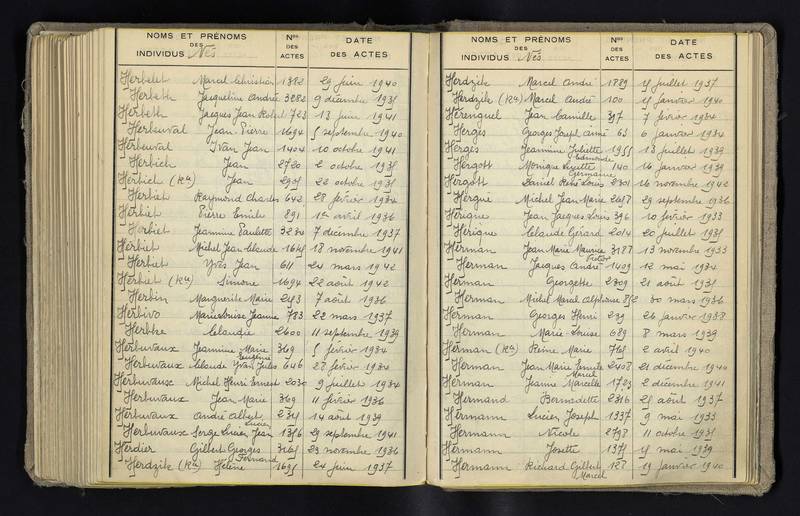 NOMS ET PRÉNOMS
DES
INDIVIDUS Nés
Nos
DES
ACTES
DATE
DES ACTES
Herbelet Marcel Christian 1382 29 juin 1940
Herbeth Jacqueline Andrée 3282 9 décembre 1935
Herbeth Jacques Jean Robert 723 13 juin 1941
Herbeuval Jean Pierre 1694 5 septembre 1940
Herbeuval Ivan Jean 1404 10 octobre 1941
Herbich Jean 2720 2 octobre 1935
Herbich (Rn) Jean 2935 22 octobre 1935
Herbiet Raymond Charles 642 28 février 1934
Herbiet Pierre Emile 891 1er avril 1936
Herbiet Jeannine Paulette 3230 7 décembre 1937
Herbiet Michel Jean Claude 1645 18 novembre 1941
Herbiet Yves Jean 611 24 mars 1942
Herbiet (Rn) Simone 1694 22 août 1942
Herbin Marguerite Marie 2413 7 août 1936
Herbivo Marie Louise Jeanne 783 22 mars 1937
Herbre Claudie 2600 11 septembre 1939
Herbuvaux Jeannine Marie 369 5 février 1934
Eugénie
Herbuvaux Claude Yvan Jules 646 28 février 1934
Herbuvaux Michel Henri Ernest 2030 9 juillet 1934
Herbuvaux Jean Marie 369 11 février 1936
Herbuvaux André Albert 2345 14 août 1939
Lucien
Herbuvaux Serge Lucien Jean 1356 29 septembre 1941
Herdier Gilbert Georges 3165 23 novembre 1936
Fernand
Herdzik (Rn) Hélène 1695 24 juin 1937
NOMS ET PRÉNOMS
DES
INDIVIDUS Nés
Nos
DES
ACTES
DATE
DES ACTES
Herdzik Marcel André 1889 15 juillet 1937
Herdzik (Rn) Marcel André 100 15 janvier 1940
Hérenguel Jean Camille 397 7 février 1934
Hergès Georges Joseph Aimé 63 6 janvier 1934
Hergès Jeannine Juliette 1955 13 juillet 1939
Edmonde
Hergott Monique Lyette 140 16 janvier 1939
Germaine
Hergott Daniel René Louis 2301 16 novembre 1942
Hergué Michel Jean Marie 2658 29 septembre 1936
Hérigne Jean Jacques Louis 396 10 février 1933
Hérique Claude Gérard 2014 20 juillet 1935
Herman Jean Marie Maurice 3187 13 novembre 1933
Victor
Herman Jacques André 1409 12 mai 1934
Herman Georgette 2309 21 août 1935
Herman Michel Marcel Alphonse 852 30 mars 1936
Herman Georges Henri 239 26 janvier 1938
Herman Marie Louise 689 8 mars 1939
Herman (Rn) Reine Marie 765 2 avril 1940
Herman Jean Marie Emile 2408 21 décembre 1940
Marcel
Herman Jeanne Marcelle 1723 2 décembre 1941
Hermand Bernadette 2316 25 août 1937
Hermann Lucien Joseph 1337 9 mai 1933
Hermann Nicole 2798 11 octobre 1935
Hermann Josette 1375 15 mai 1939
Hermann Richard Gilbert 128 19 janvier 1940
Marcel